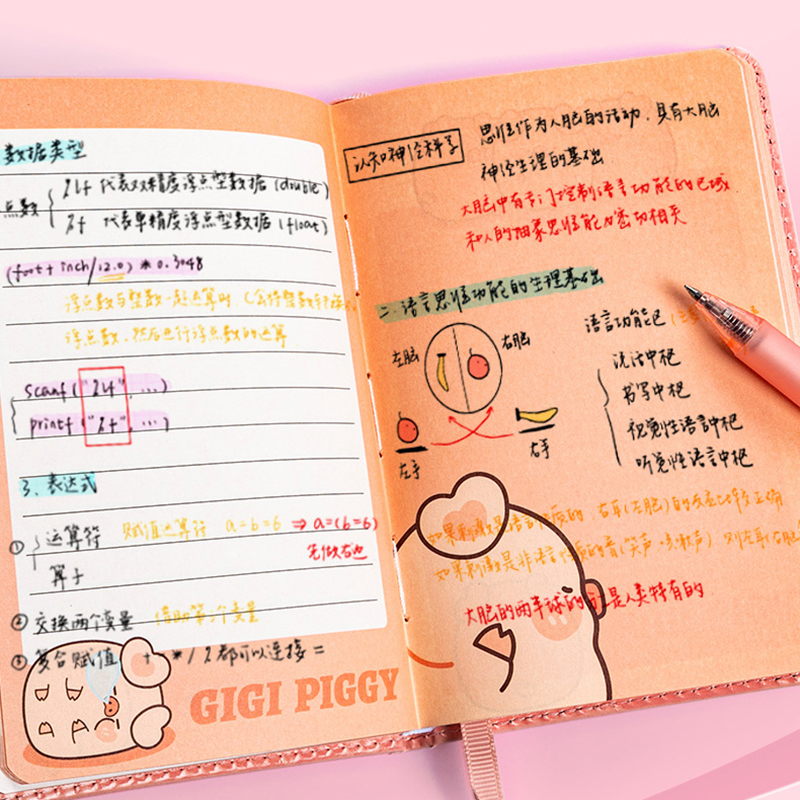 数据类型
点数
%lf 代表双精度浮点型数据(double)
%f 代表单精度浮点型数据(float)
(foot + inch/12.0) * 0.3048
浮点数与整数一起运算时(会将整数转换
浮点数,然后进行浮点数的运算
scanf("%lf", ...)
printf("%f", ...)
3. 表达式
① 运算符 赋值运算符 a=b=6 ⇒ a=(b=6)
先做右边
算子
② 交换两个变量 借助第三个变量
③ 复合赋值 + - * / % 都可以连接 =
GIGI PIGGY
认知神经科学
思维作为人脑的活动,具有大脑
神经生理的基础
大脑中有专门控制语言功能的区域
和人的抽象思维能力密切相关
二.语言思维功能的生理基础
左脑
右脑
左手
右手
语言功能区
说话中枢
书写中枢
视觉性语言中枢
听觉性语言中枢
如果刺激是语言性质的,右耳(左脑)的反应比较正确
如果刺激是非语言性质的音(笑声、咳嗽声)则左耳(右脑
大脑的两半球的分工是人类特有的